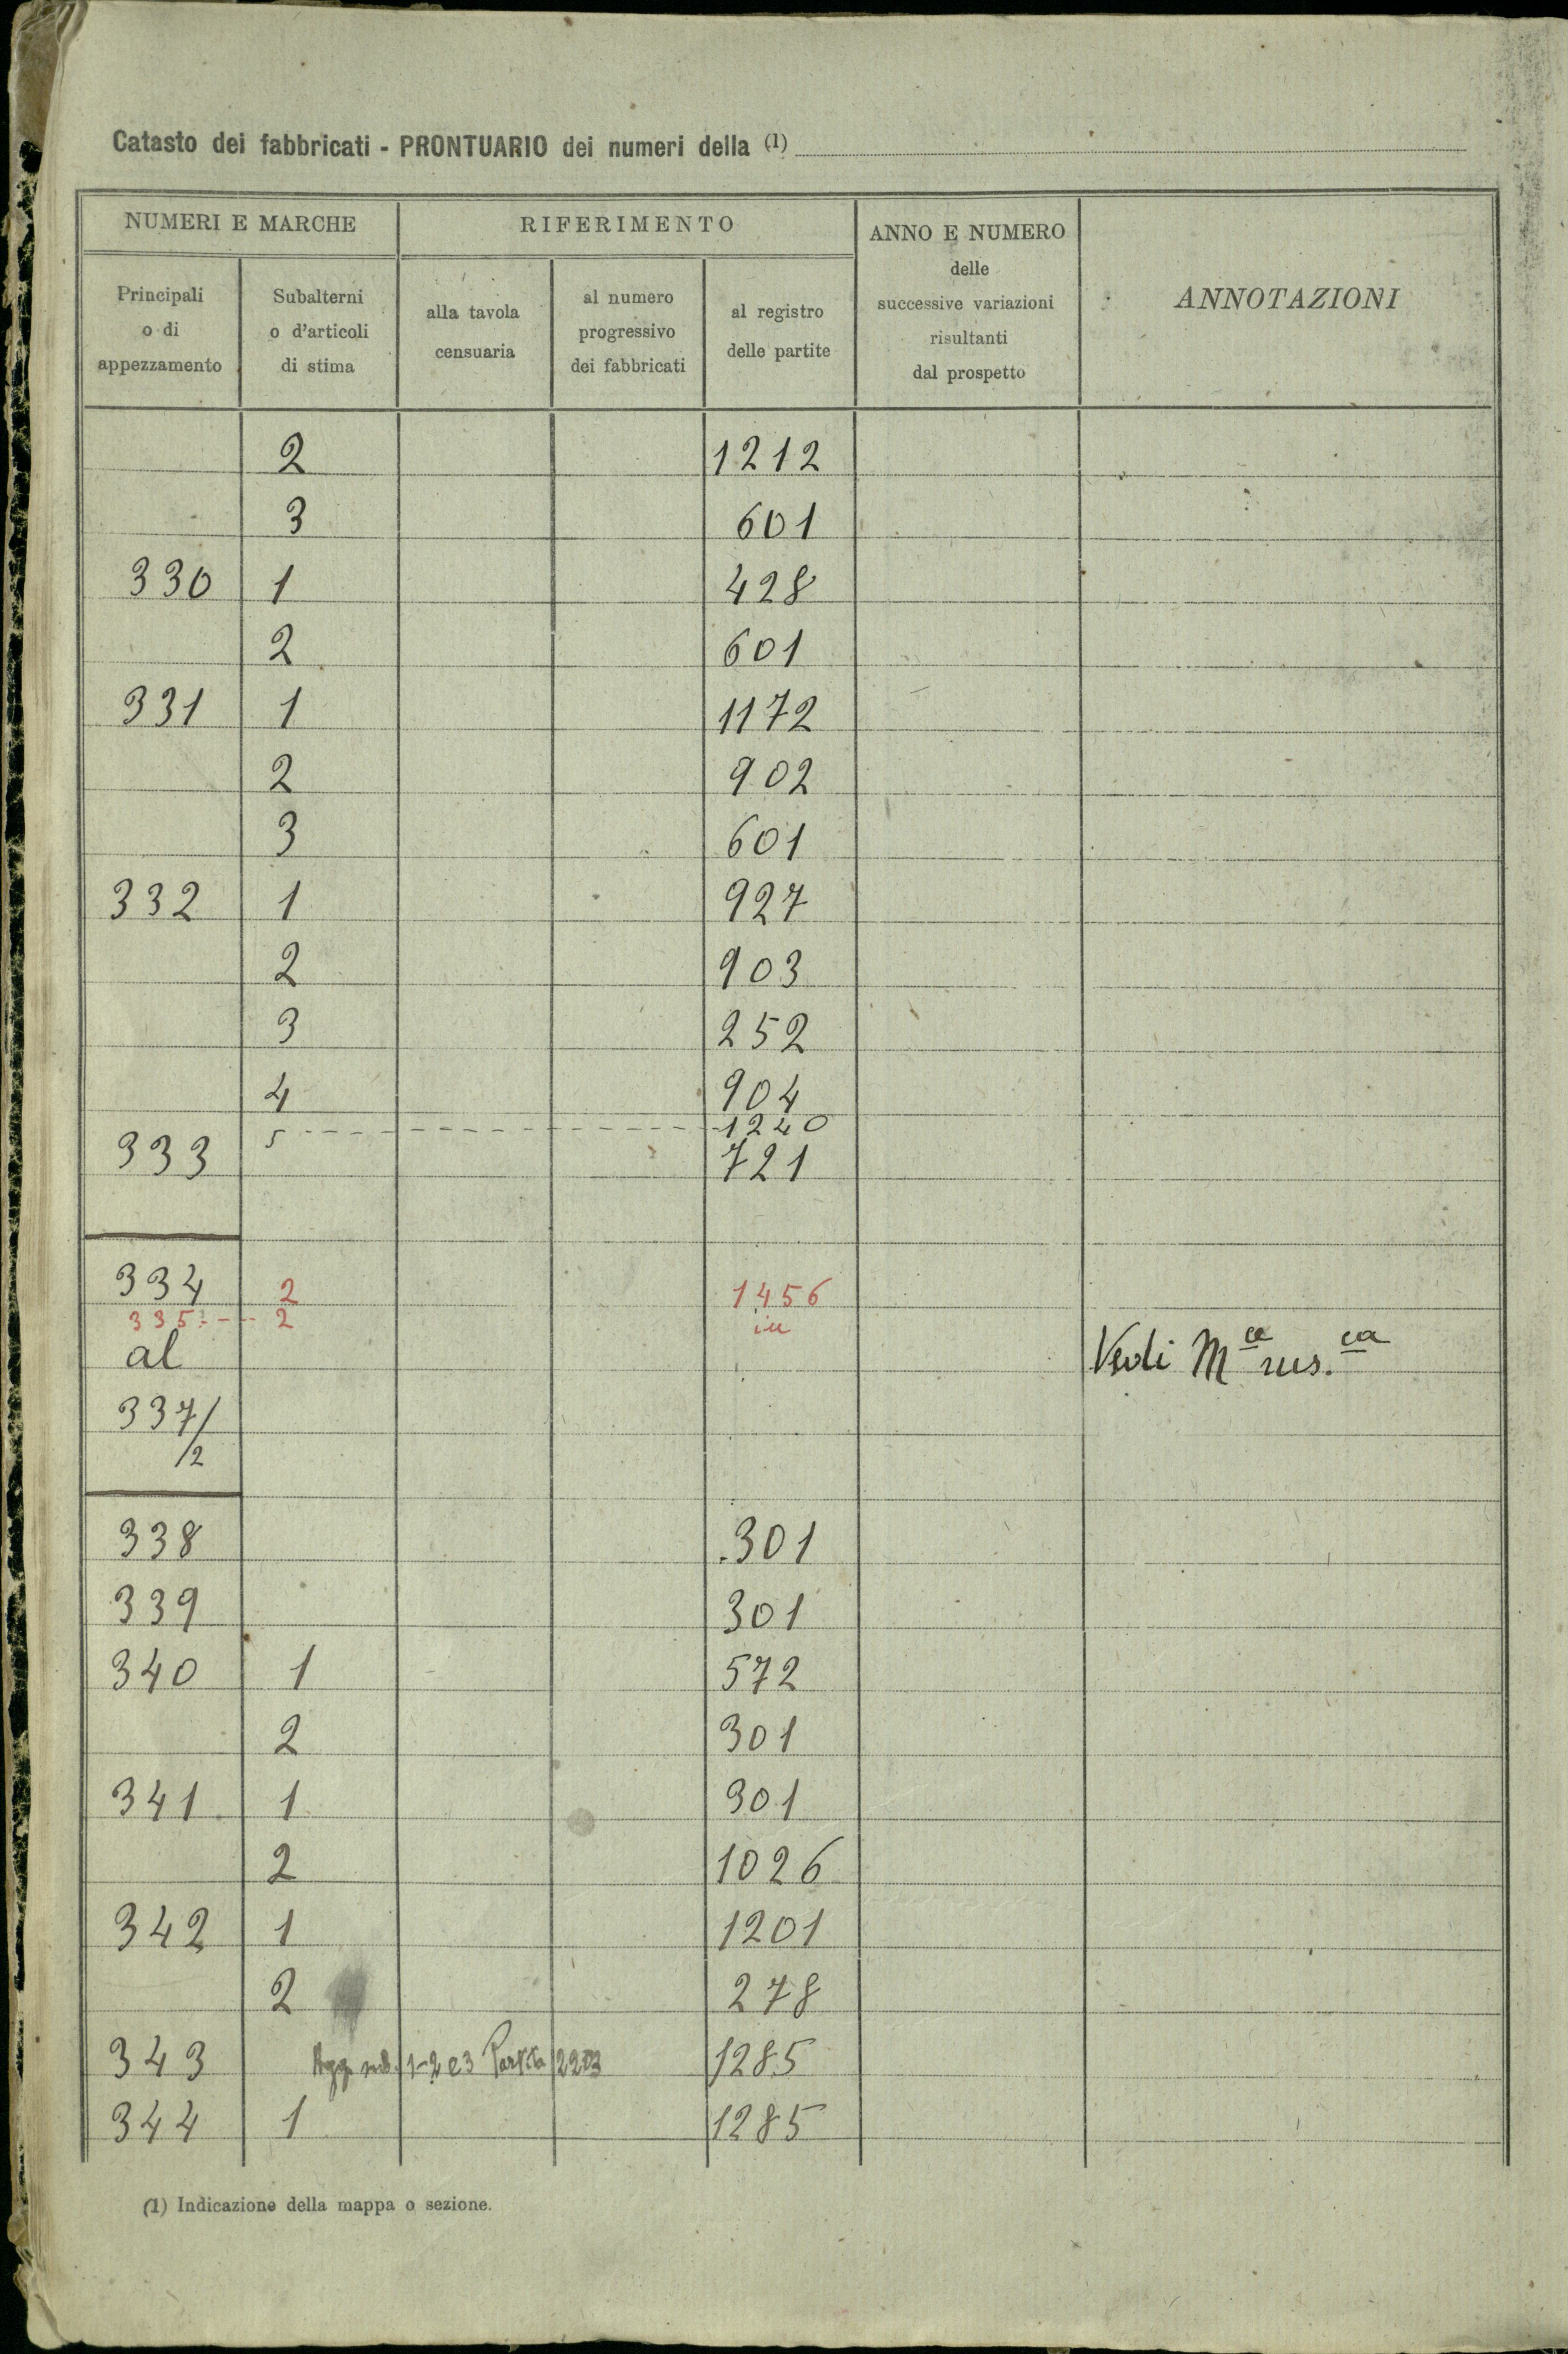 Catasto dei fabbricati - PRONTUARIO dei numeri della (1)
NUMERI E MARCHE
RIFERIMENTO
ANNO E NUMERO
delle
successive variazioni
risultanti
dal prospetto
ANNOTAZIONI
Principali
o di
appezzamento
Subalterni
o d'articoli
di stima
alla tavola
censuaria
al numero
progressivo
dei fabbricati
al registro
delle partite
2 1212
3 601
330 1 428
2 601
331 1 1172
2 902
3 601
332 1 927
2 903
3 252
4 904
5 1240
333 721
334 2 1456
335 2 in
al Vedi Mca rus.ca
337/
/2
338 301
339 301
340 1 572
2 301
341 1 301
2 1026
342 1 1201
2 278
343 Agg. sub. 1-2 e 3 Partita 2203 1285
344 1 1285
(1) Indicazione della mappa o sezione.